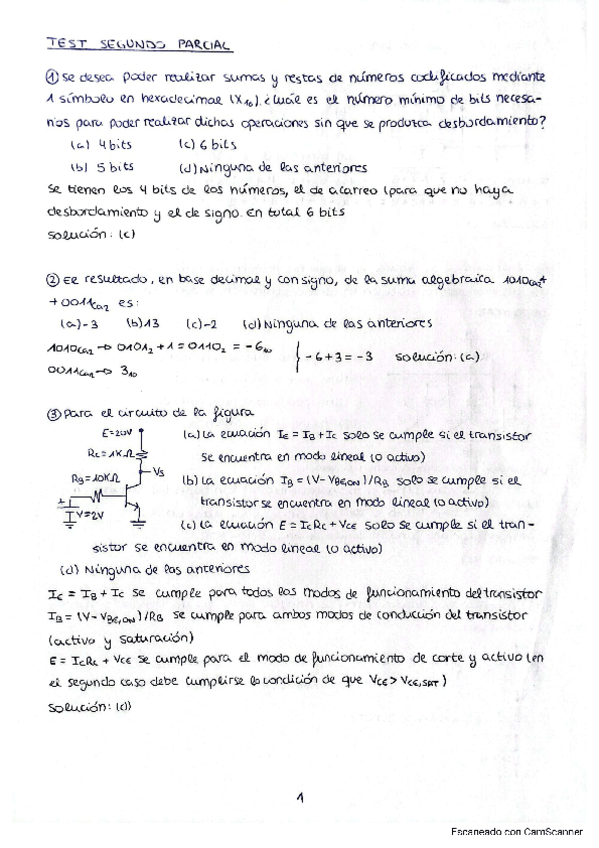 TEST SEGUNDO PARCIAL
① Se desea poder realizar sumas y restas de números codificados mediante
1 símbolo en hexadecimal (X₁₆). ¿Cuál es el número mínimo de bits necesa-
rios para poder realizar dichas operaciones sin que se produzca desbordamiento?
(a) 4 bits (c) 6 bits
(b) 5 bits (d) Ninguna de las anteriores
Se tienen los 4 bits de los números, el de acarreo (para que no haya
desbordamiento y el de signo. En total 6 bits
Solución: (c)
② El resultado, en base decimal y con signo, de la suma algebraica 1010ca2 +
+ 0011ca2 es:
(a) -3 (b) 13 (c) -2 (d) Ninguna de las anteriores
1010ca2 → 0101₂ + 1 = 0110₂ = -6₁₀
-6 + 3 = -3 Solución: (a)
0011ca2 → 3₁₀
③ Para el circuito de la figura
E=20V
Rc=1KΩ
Vs
RB=10KΩ
+
V=2V
(a) La ecuación IE = IB + IC solo se cumple si el transistor
se encuentra en modo lineal (o activo)
(b) La ecuación IB = (V - VBE,ON)/RB solo se cumple si el
transistor se encuentra en modo lineal (o activo)
(c) La ecuación E = ICRC + VCE solo se cumple si el tran-
sistor se encuentra en modo lineal (o activo)
(d) Ninguna de las anteriores
IE = IB + IC se cumple para todos los modos de funcionamiento del transistor
IB = (V - VBE,ON)/RB se cumple para ambos modos de conducción del transistor
(activo y saturación)
E = ICRC + VCE se cumple para el modo de funcionamiento de corte y activo (en
el segundo caso debe cumplirse la condición de que VCE > VCE,SAT)
Solución: (d)
1
Escaneado con CamScanner